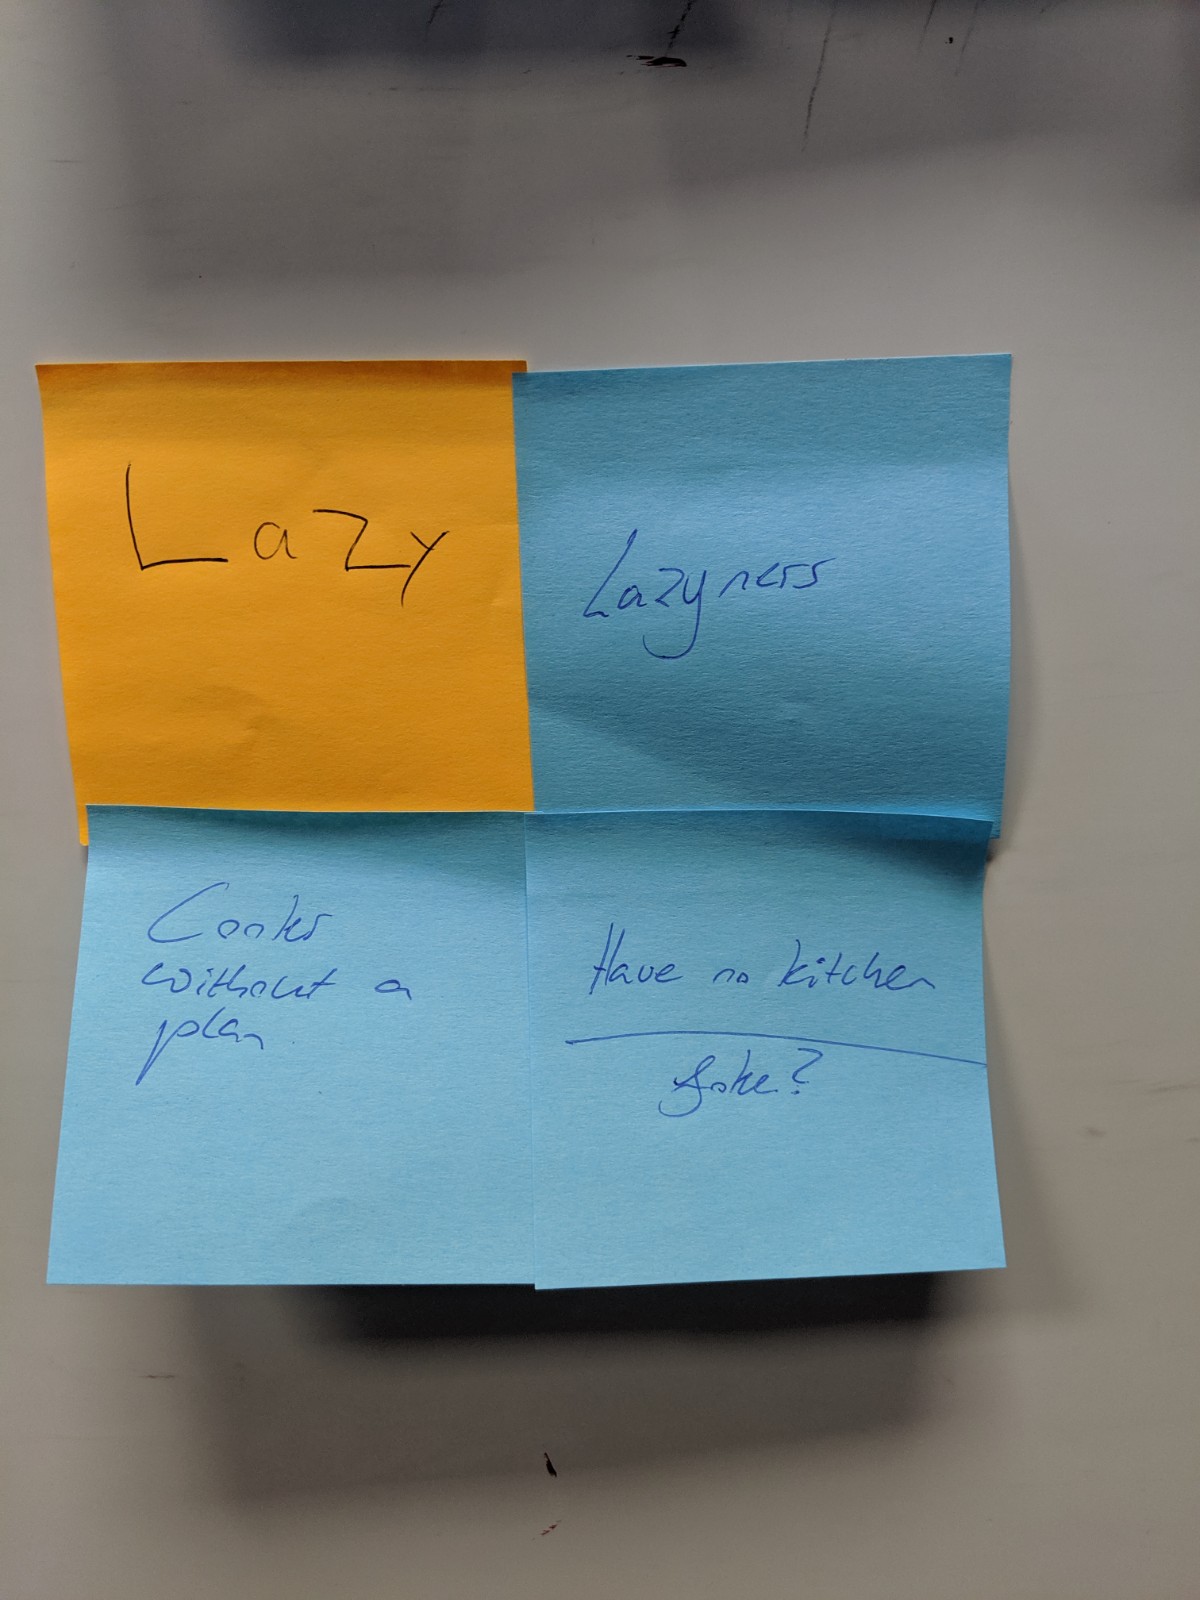 Lazy
Lazyness
Cooks
without a
plan
Have no kitchen
Joke?